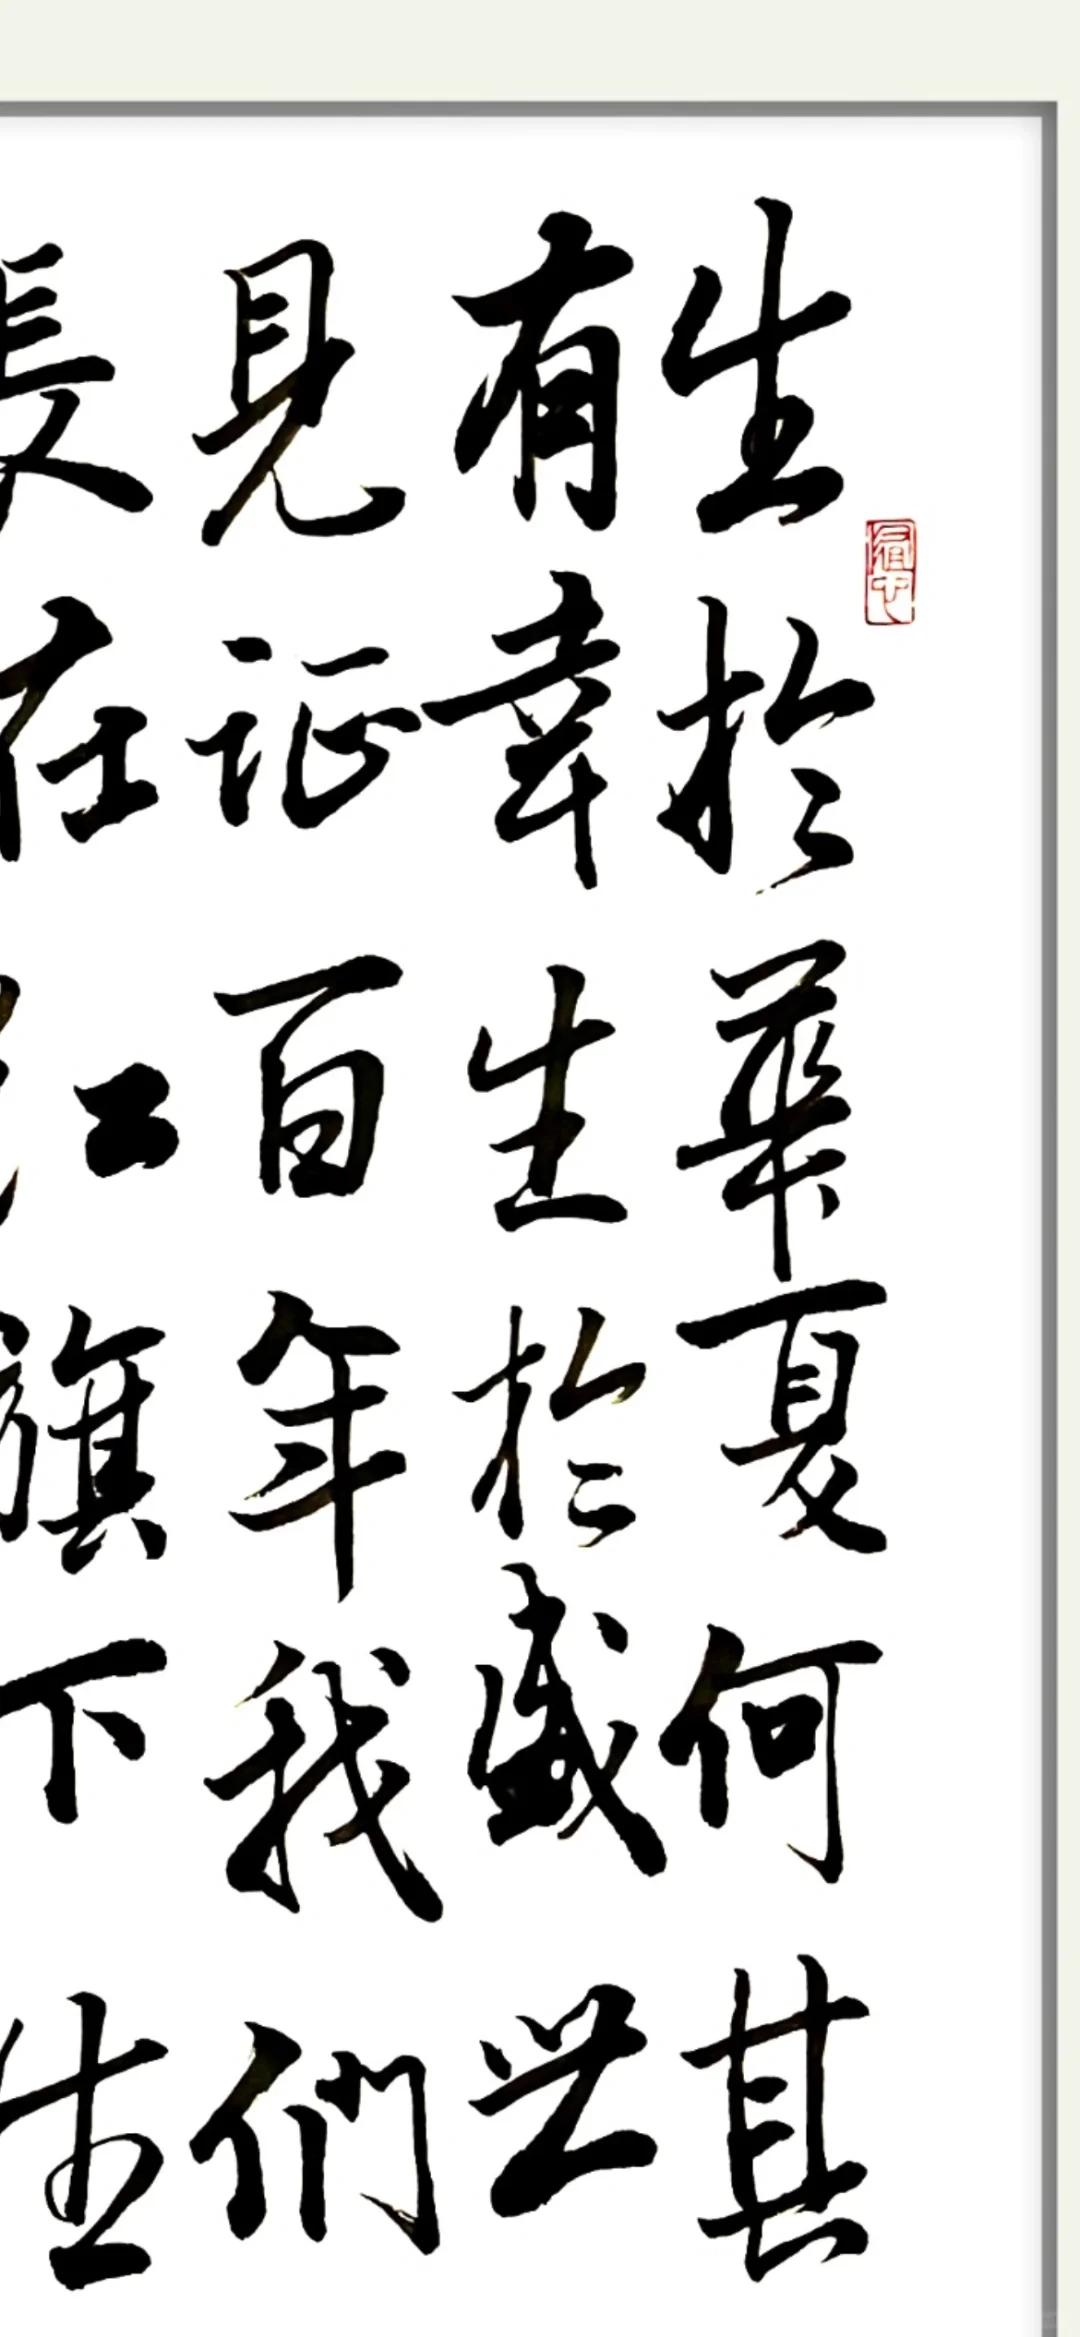 生於華夏何其
有幸生於盛世
見证百年我們
長在红旗下生